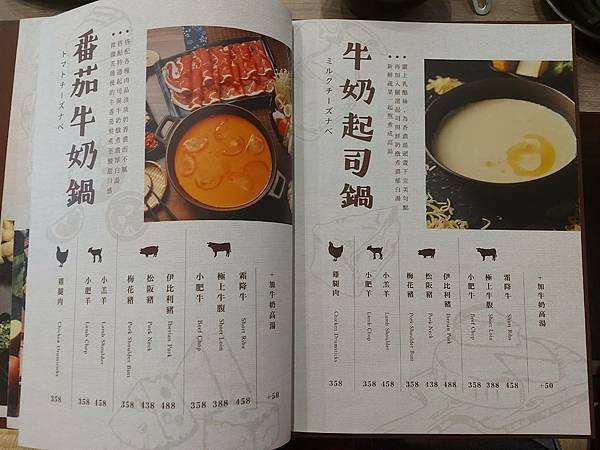 番茄牛奶鍋
トマトチーズナベ
雞腿肉
Chicken Drumsticks
358
小肥羊
Lamb Chop
358
小羔羊
Lamb Shoulder
458
梅花豬
Pork Shoulder Butt
358
松阪豬
Pork Neck
438
伊比利豬
Iberian Pork
488
小肥牛
Beef Chop
358
極上牛腹
Short Loin
388
霜降牛
Short Ribs
458
+加牛奶高湯
+50
牛奶起司鍋
ミルクチーズナベ
雞腿肉
Chicken Drumsticks
358
小肥羊
Lamb Chop
358
小羔羊
Lamb Shoulder
458
梅花豬
Pork Shoulder Butt
358
松阪豬
Pork Neck
438
伊比利豬
Iberian Pork
488
小肥牛
Beef Chop
358
極上牛腹
Short Loin
388
霜降牛
Short Ribs
458
+加牛奶高湯
+50